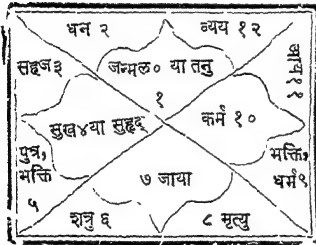 धन २
व्यय १२
सहज३
जन्मल० या तनु
आय
११
१
सुख४या सुहृद्
कर्म १०
पुत्र,
भक्ति
५
भक्ति,
धर्म९
७ जाया
शत्रु ६
८ मृत्यु